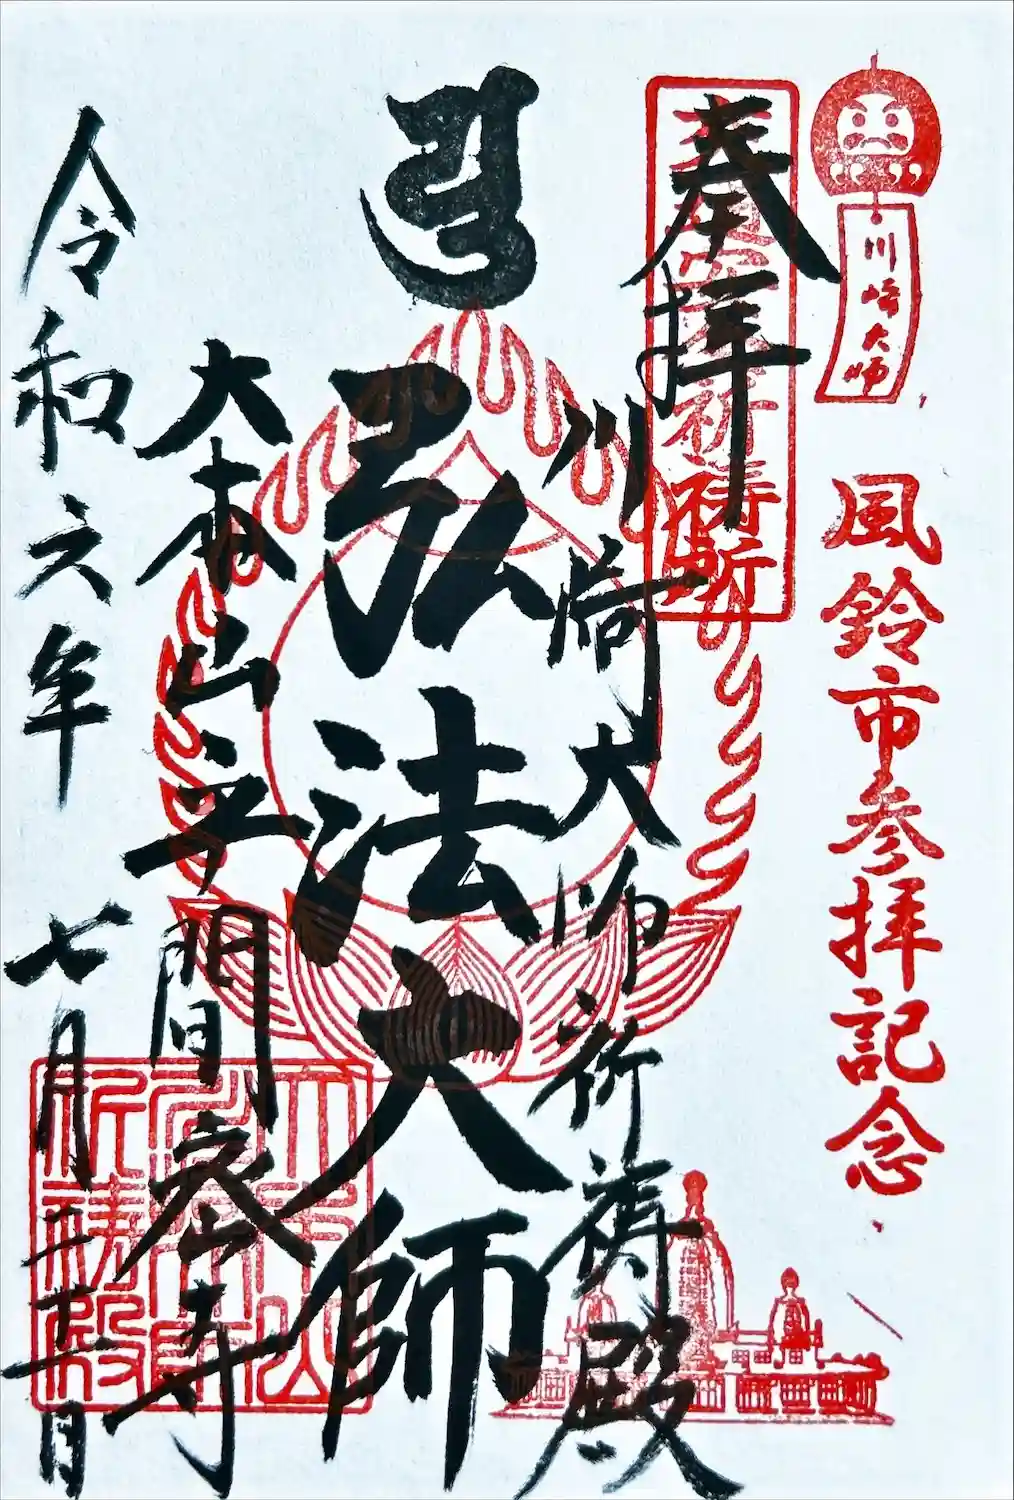 川崎大師
風鈴市参拝記念
奉拝
祈祷所
川崎大師祈祷殿
弘法大師
大本山平間寺
令和六年七月二十二日